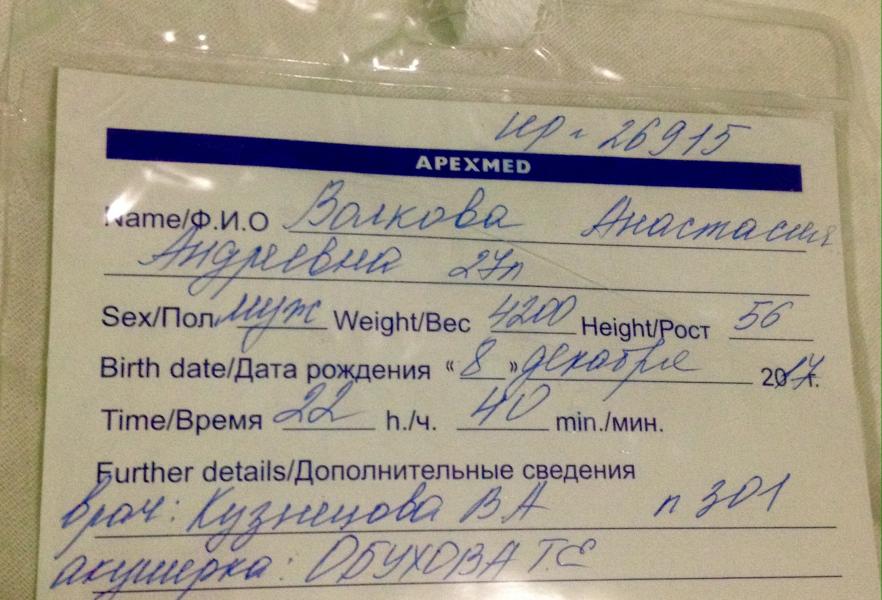 ир г 26915
APEXMED
Name/Ф.И.О Волкова Анастасия
Андреевна 27л
Sex/Пол муж Weight/Вес 4200 Height/Рост 56
Birth date/Дата рождения «8» декабря 2017г.
Time/Время 22 h./ч. 40 min./мин.
Further details/Дополнительные сведения
врач: Кузнецова В А п 301
акушерка: ОБУХОВА Т.Е